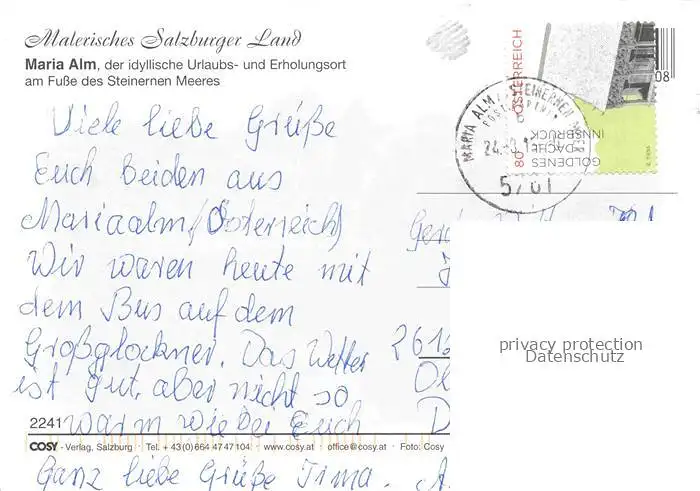 Malerisches Salzburger Land
Maria Alm, der idyllische Urlaubs- und Erholungsort
am Fuße des Steinernen Meeres
Viele liebe Grüße
Euch beiden aus
Mariaalm (Österreich)
Wir waren heute mit
dem Bus auf dem
Großglockner. Das Wetter
ist gut, aber nicht so
warm wie bei Euch
2241
COSY - Verlag, Salzburg Tel. + 43(0)664 47 47 104 www.cosy.at office@cosy.at Foto: Cosy
Ganz liebe Grüße Irma.
ÖSTERREICH
80
GOLDENES
DACHL
INNSBRUCK
08
MARIA ALM STEINERNEN MEER
5761
privacy protection
Datenschutz